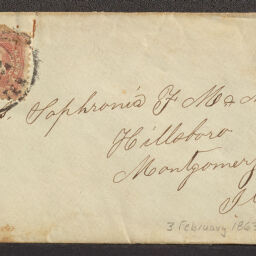 s. Sophronia F M & M
Hillsboro
Montgomery
Il
3 February 1863